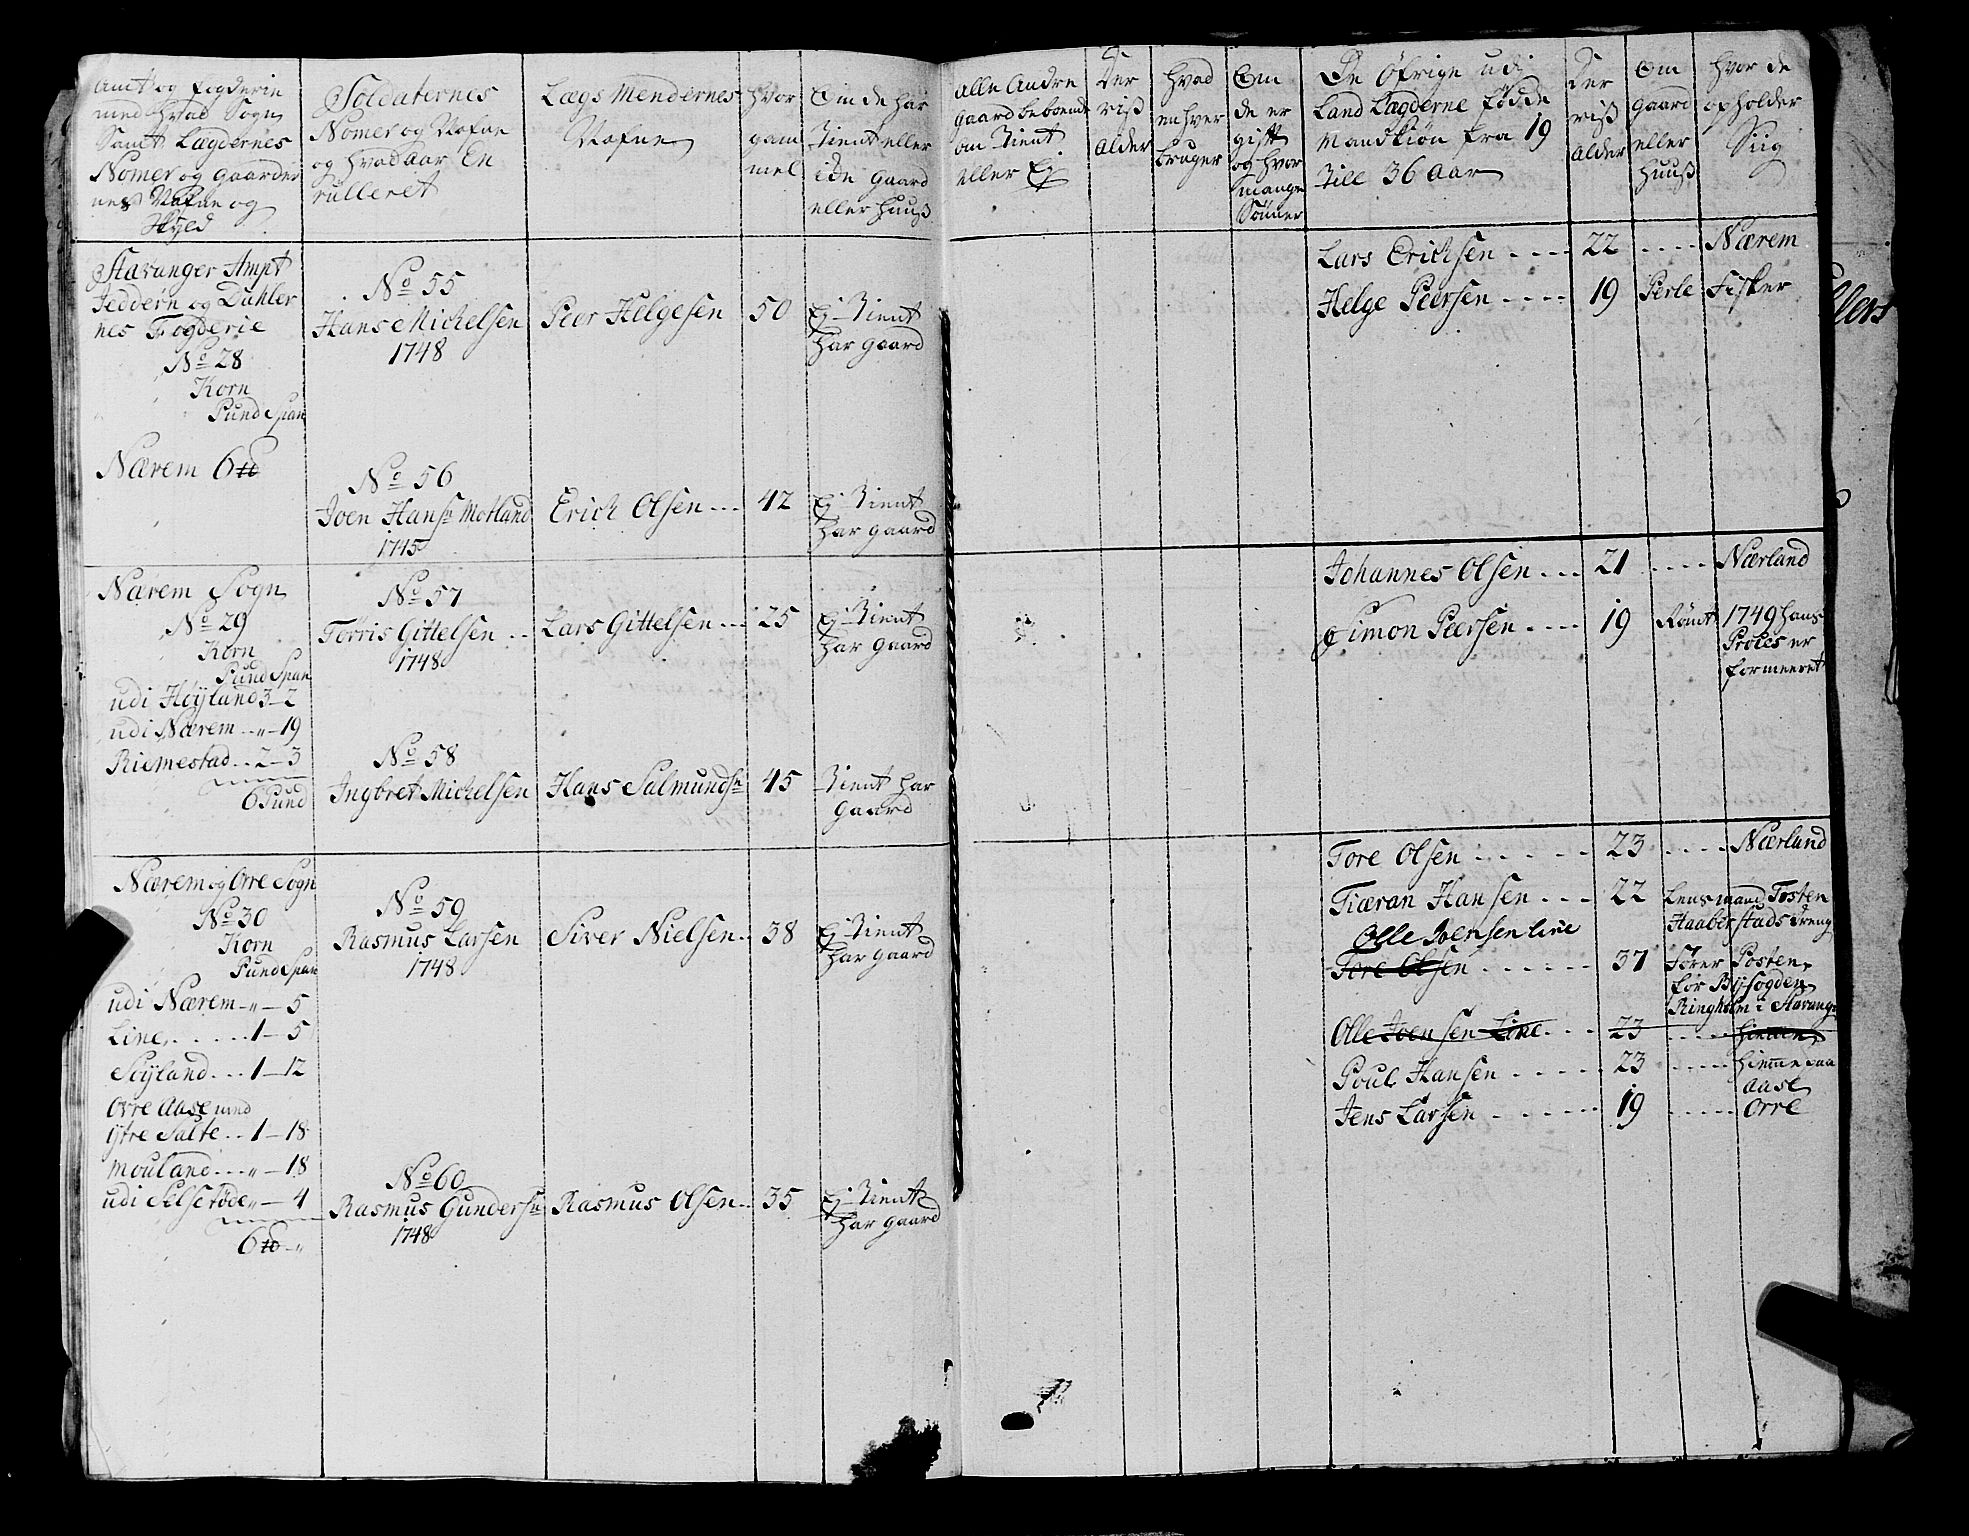 Amt og Fogderie
med hvad Sogn
Samt Lægdernes
Nomer og Gaarder
nes Nafne og
Skyld
Soldaternes
Nomer og Nafne
og hvad Aar En
rulleret
Lægs Mendernes
Nafne
hvor
gam
mel
Om de har
Tient eller
Ide Gaard
eller Huuß
Alle Andre
Gaard beboende
om Tient
eller Ej
Der
riß
Alder
Hvad
en hver
bruger
Om
de er
gift
og hvor
mange
Sönner
De Øfrige udj
Land Lægderne födde
Mandkiön fra 19
Till 36 Aar
Der
riß
Alder
Om
Gaard
eller
Huuß
Hvor de
opholder
Siig
Stavanger Ampt
Jedderen og Dahler
nes Fogderie
No 28
Korn
Pund Span
Nærem 6 td
No 55
Hans Michelsen
1748
Peer Helgesen
50
Ej Tient
har Gaard
Lars Erichsen .... 22 .... Nærem
Helge Peersen .... 19 Perle Fisker
No 56
Joen Hansn Motland
1745
Erich Olsen ... 42
Ej Tient
har Gaard
Nærem Sogn
No 29
Korn
Pund Span
udi Höyland 3 - 2
udi Nærem .. " - 19
Riemestad .. 2 - 3
6 Pund
No 57
Torris Gittelsen ..
1748
Lars Gittelsen ... 25
Ej Tient
har Gaard
Johannes Olsen ... 21 .... Nærland
Simon Peersen .... 19 Römt 1749 hans
Proces er
formeeret
No 58
Ingbret Michelsen
Hans Salmundsn 45
Tient har
Gaard
Nærem og Orre Sogn
No 30
Korn
Pund Span
udi Nærem - " - 5
Line ...... 1 - 5
Söyland ... 1 - 12
Orre Aase med
ytre Salte .. 1 - 18
Mouland ... " - 18
udi Selseröde " - 4
6 td - "
No 59
Rasmus Larsen
1748
Siver Nielsen .. 38
Ej Tient
har Gaard
Tore Olsen ..... 23 .... Nærland
Tiæran Hansen ... 22 Lensmand Tosten
Haaberstads dreng
Olle Joensen Line
Tore Olsen ...... 37 Förer Posten
for Byfogden
Ringholm i Stavanger
Olle Joensen Line ... 23 ..... hiemme
Poul Hansen ..... 23 ..... hiemme paa
Aase
Jens Larsen ...... 19 ..... Orre
No 60
Rasmus Gundersn
1748
Rasmus Olsen .. 35
Ej Tient
har Gaard